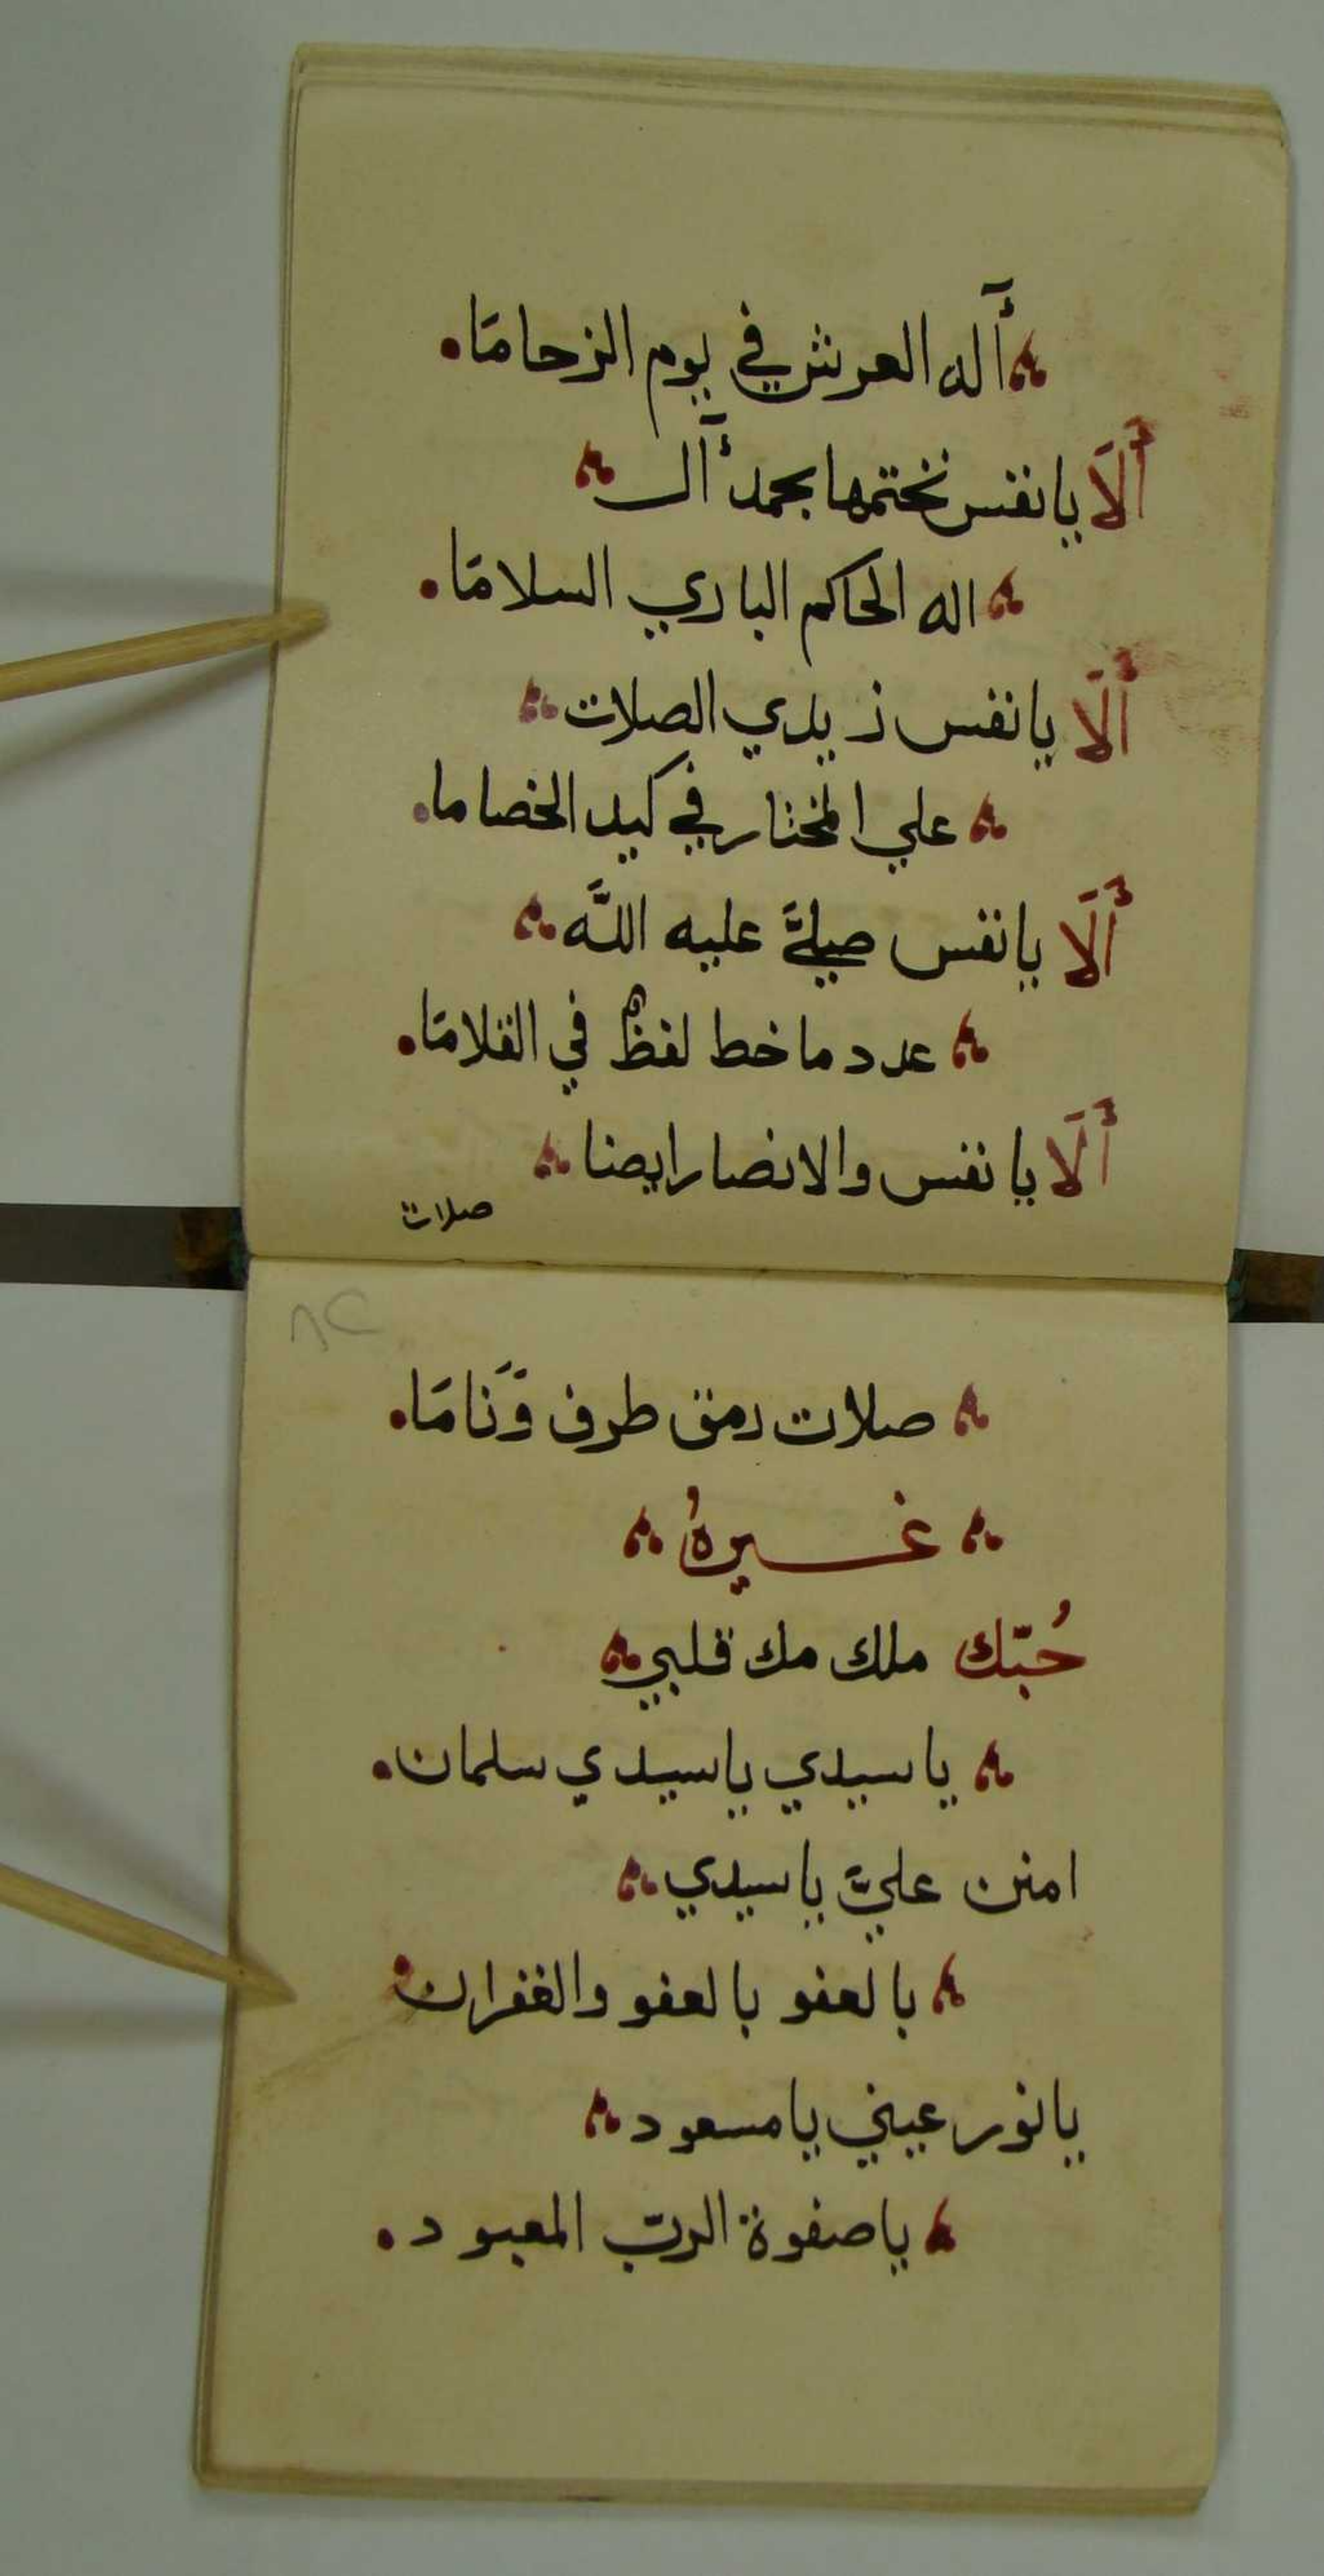 أله العرش في يوم الزحامَا.
ألَا يا نفس نختمها بحمد أل
اله الحاكم الباري السلامَا.
ألَا يا نفس زيدي الصلات
علي المختار في كيد الخصاما.
ألَا يا نفس صليَّ عليه اللَّه
عدد ما خط لفظٌ في القلامَا.
ألَا يا نفس والانصار ايضا
صلات
٨٢
صلات رمق طرف وَنَامَا.
غيرهُ
حُبّك ملك مك قلبي
يا سيدي يا سيدي سلمان.
امنن عليَّ يا سيدي
بالعفو بالعفو والغفران
يا نور عيني يا مسعود
يا صفوة الربّ المعبود.